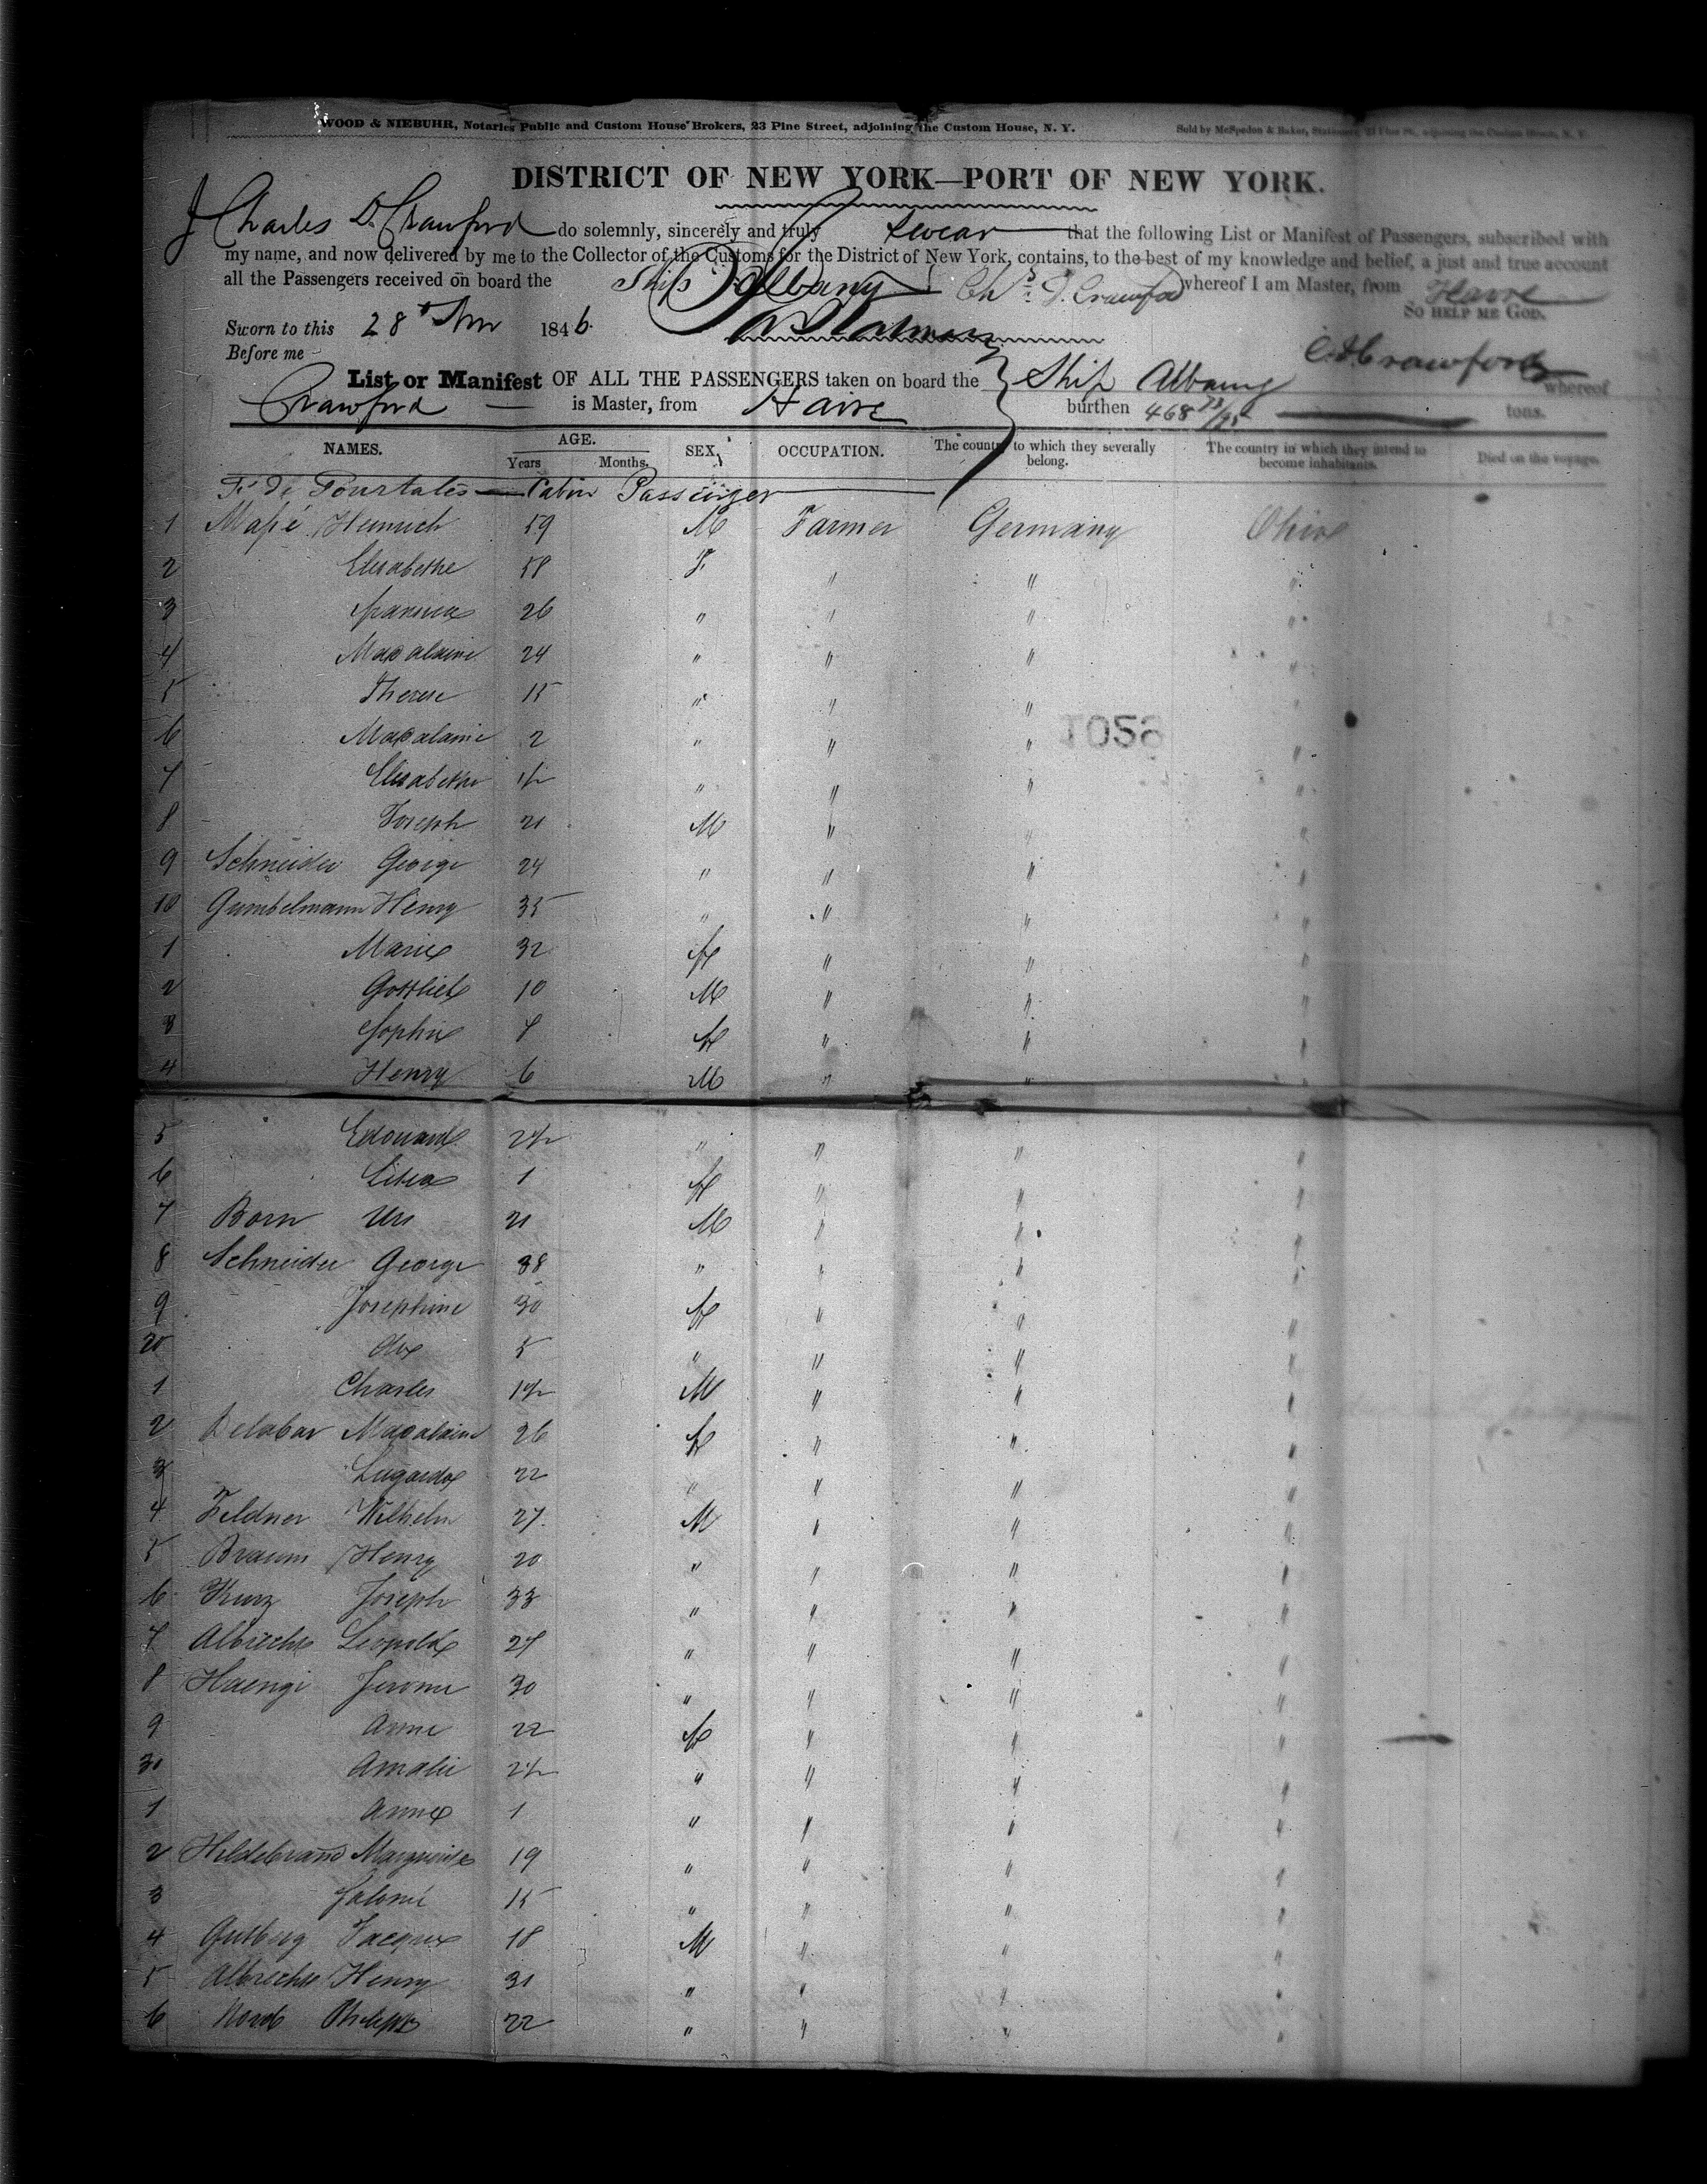 WOOD & NIEBUHR, Notaries Public and Custom House Brokers, 23 Pine Street, adjoining the Custom House, N. Y. Sold by McSpedon & Baker, Stationers, Pine St., adjoining the Custom House, N. Y.
DISTRICT OF NEW YORK—PORT OF NEW YORK.
I Charles D. Crawford do solemnly, sincerely and truly swear that the following List or Manifest of Passengers, subscribed with
my name, and now delivered by me to the Collector of the Customs for the District of New York, contains, to the best of my knowledge and belief, a just and true account
all the Passengers received on board the Ship Albany Chs D. Crawford whereof I am Master, from Havre
SO HELP ME GOD.
Sworn to this 28 1846.
Before me
C D Crawford
List or Manifest OF ALL THE PASSENGERS taken on board the Ship Albany whereof
Crawford is Master, from Havre burthen 468 73/95 tons.
NAMES. AGE. SEX, OCCUPATION. The country to which they severally belong. The country in which they intend to become inhabitants. Died on the voyage.
Years Months.
F. De Pourtales — Cabin Passenger
1 Heinrich 59 M Farmer Germany Ohio
2 Elisabethe 58 F. " " "
3 26 " " " "
4 Madalaine 24 " " " "
5 Therese 15 " " " "
6 Madalaine 2 " " " "
1058
7 Elisabethe 1/2 " " " "
8 Joseph 21 M " " "
9 Schneider George 24 " " " "
10 Gumbelmann Henry 35 " " " "
1 Marie 32 F " " "
2 Gottlieb 10 M " " "
3 Sophie 7 F " " "
4 Henry 6 M " "
5 Edouard 2 1/2 " " " "
6 1 F " " "
7 Born Urs 21 M " " "
8 Schneider George 38 " " " "
9 Josephine 30 F " " "
20 do 5 " " " "
1 Charles 1 1/2 M " " "
2 Delabar Madalaine 26 F " " "
3 Lugarda 22 " " " "
4 Feldner Wilhelm 27 M " " "
5 Braum Henry 20 " " " "
6 Kurz Joseph 33 " " " "
7 Albrecht Leopold 27 " " " "
8 Haengi Jerome 30 " " " "
9 Anne 22 F " " "
30 Amalie 2 1/2 " " " "
1 Anne 1 " " " "
2 Hildebrand Marguerite 19 " " " "
3 Salomé 15 " " " "
4 Gutberg Jacques 18 M " " "
5 Albrecht Henry 31 " " " "
6 Philipp 22 " " " "